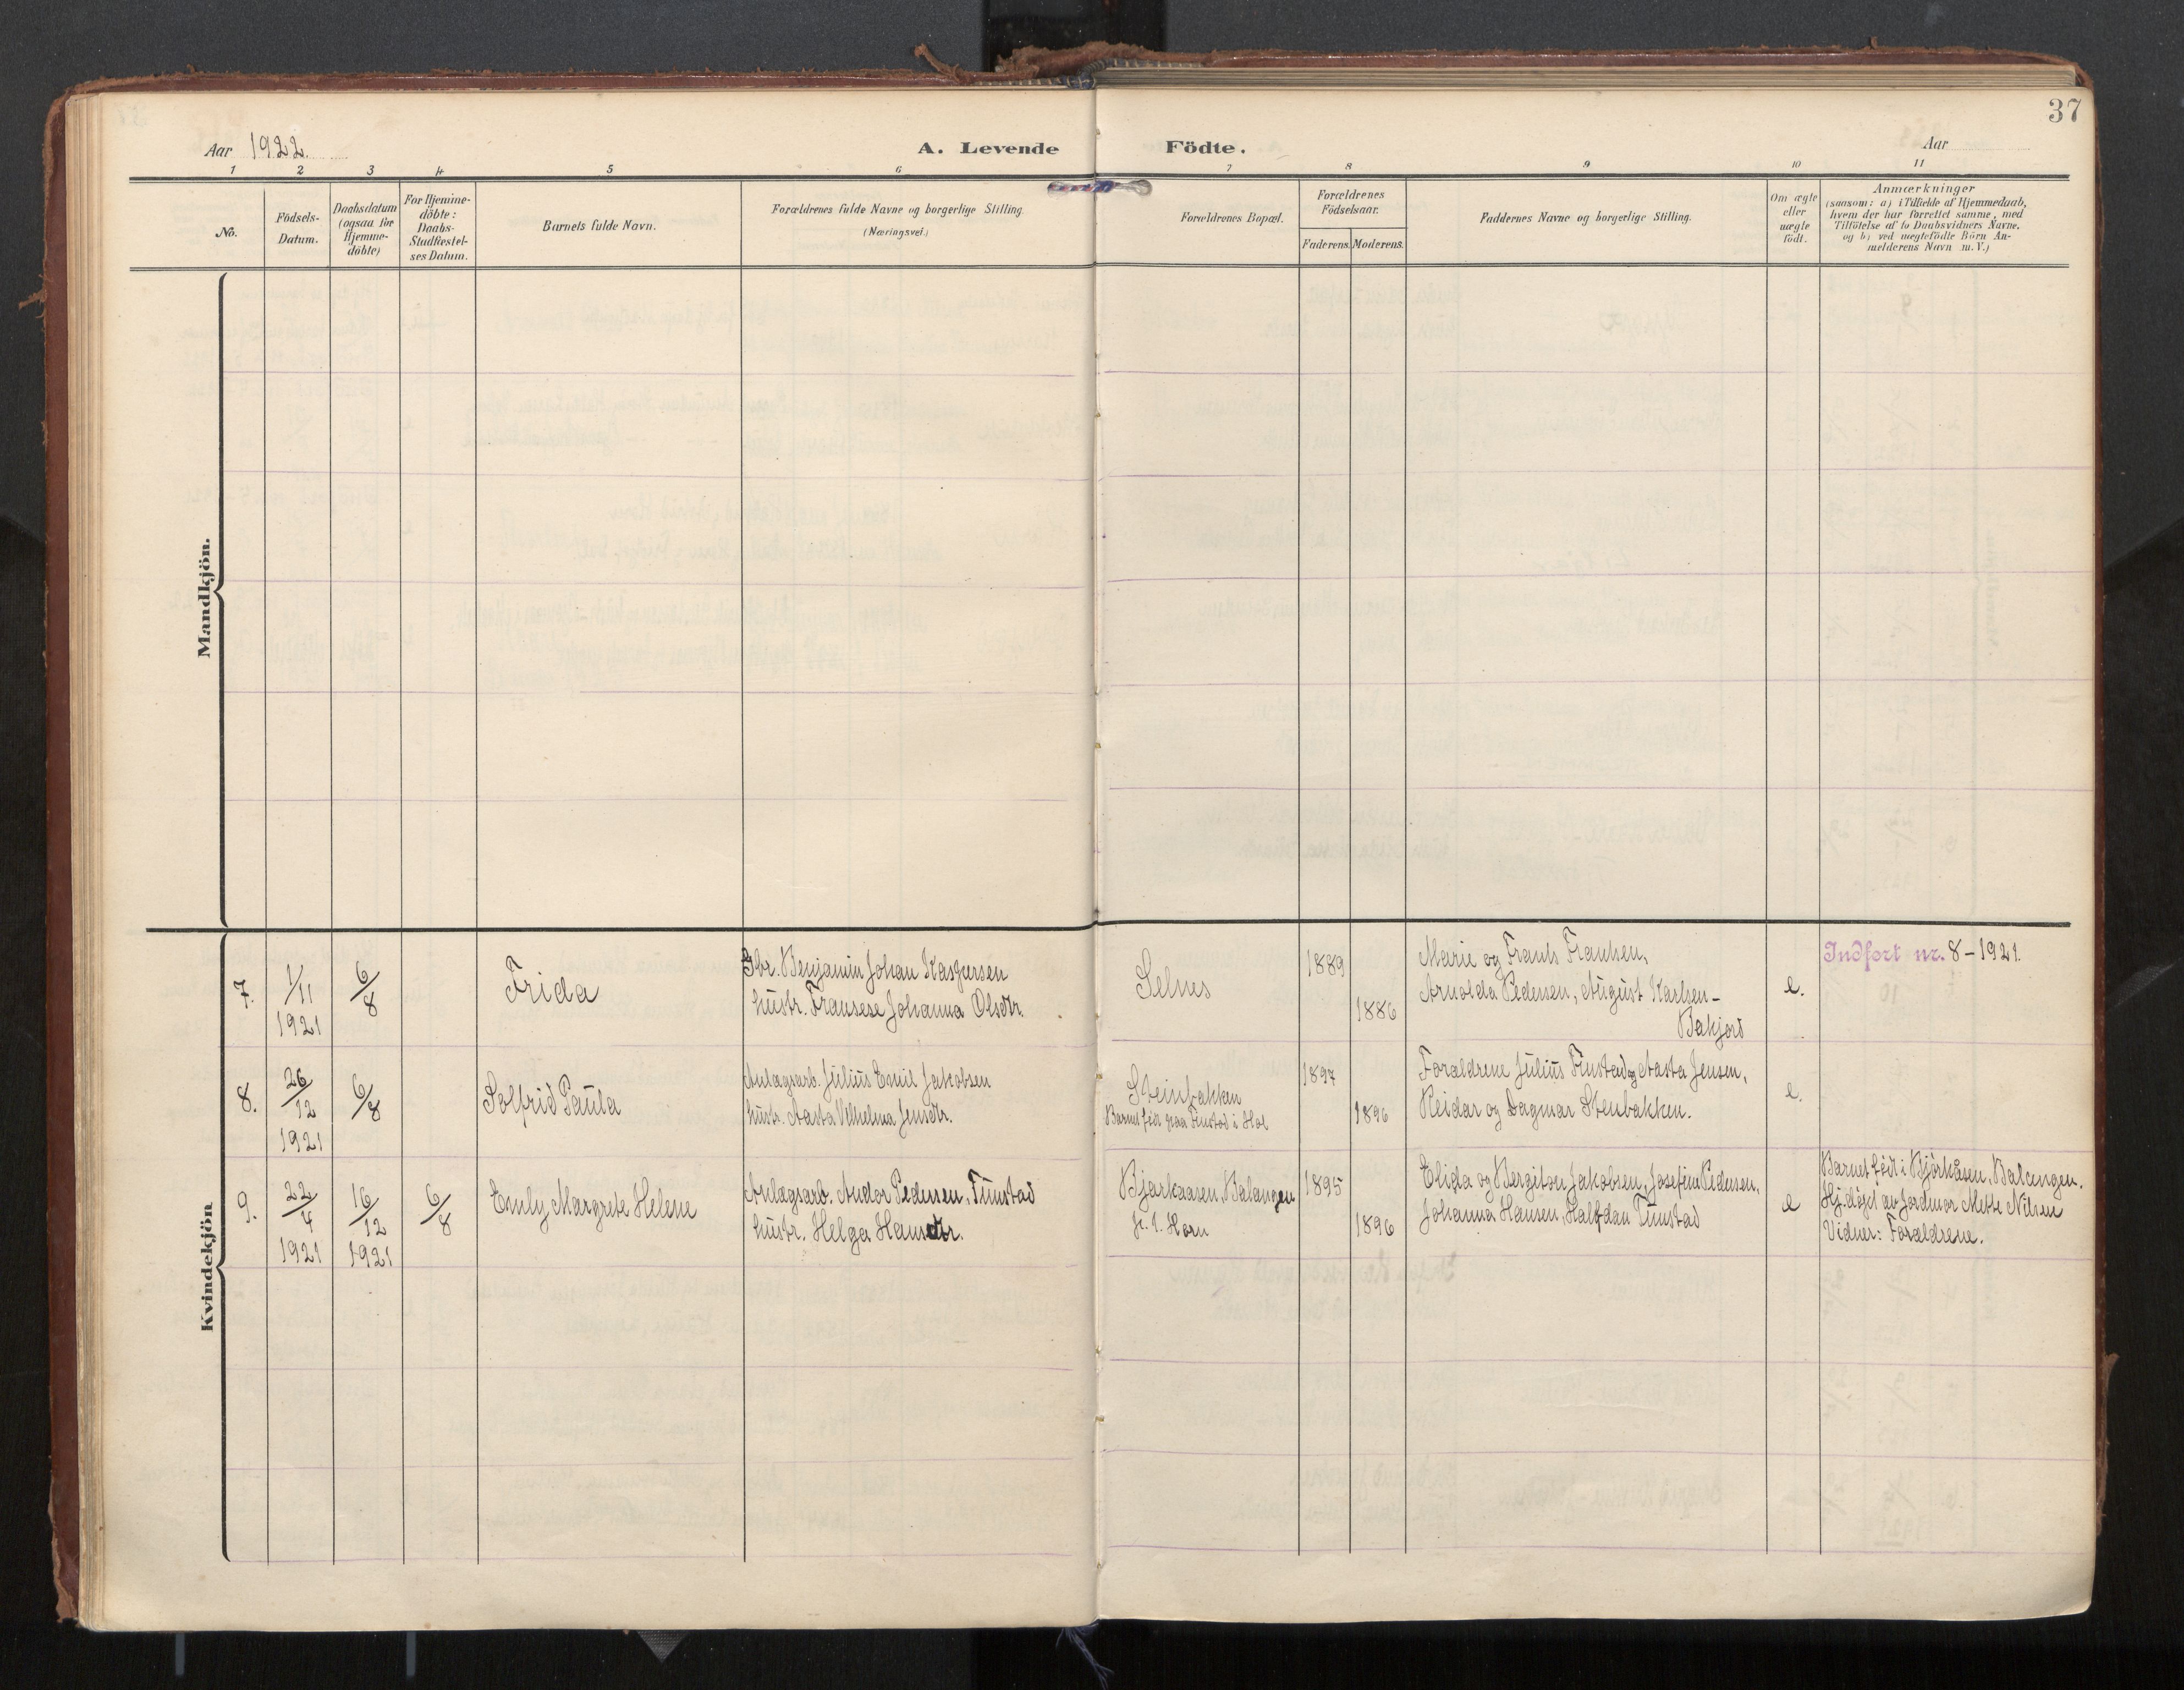 37
Aar 1922.
A. Levende Födte.
Aar
1 2 3 4 5 6 7 8 9 10 11
No.
Födsels-
Datum.
Daabsdatum
(ogsaa for
Hjemme-
döbte)
For Hjemme-
döbte:
Daabs-
Stadfæstel-
ses Datum.
Barnets fulde Navn.
Forældrenes fulde Navne og borgerlige Stilling.
(Næringsvei.)
Forældrenes Bopæl.
Forældrenes
Födselsaar.
Faderens. Moderens.
Faddernes Navne og borgerlige Stilling.
Om ægte
eller
uægte
födt.
Anmærkninger
(saasom: a) i Tilfælde af Hjemmedaab,
hvem der har forrettet samme, med
Tilföielse af to Daabsvidners Navne,
og b) ved uægtefödte Börn An-
melderens Navn m. V.)
Mandkjön.
Kvindekjön
7.
1/11
1921
6/8
Frida
Gbr. Benjamin Johan Kaspersen
hustr. Fransese Johanna Olsdtr.
Selnes
1889
1886
Marie og Frants Frantsen,
Arnolda Pedersen, August Karlsen -
Bakjord
e.
Indført nr. 8 - 1921.
8.
26/12
1921
6/8
Solfrid Paula
Anlægsarb. Julius Emil Jakobsen
hustr. Aasta Vilhelma Jensdtr.
Steinbakken
Barnet født paa Finstad i Hol
1897
1896
Forældrene Julius Finstad og Aasta Jensen,
Reidar og Dagmar Stenbakken.
e.
9.
22/4
1921
16/12
1921
6/8
Emly Margrete Helene
Anlægsarb. Andor Pedersen, Finstad
hustr. Helga Hansdtr.
Bjørkaasen, Balangen
1895
1896
Elida og Bergiton Jakobsen, Josefine Pedersen,
Johanna Hansen, Halfdan Finstad
e
Barnet født i Bjørkåsen, Balangen.
Hj.døpt av Jordmor Mette Nilsen
Vidner: Forældrene.